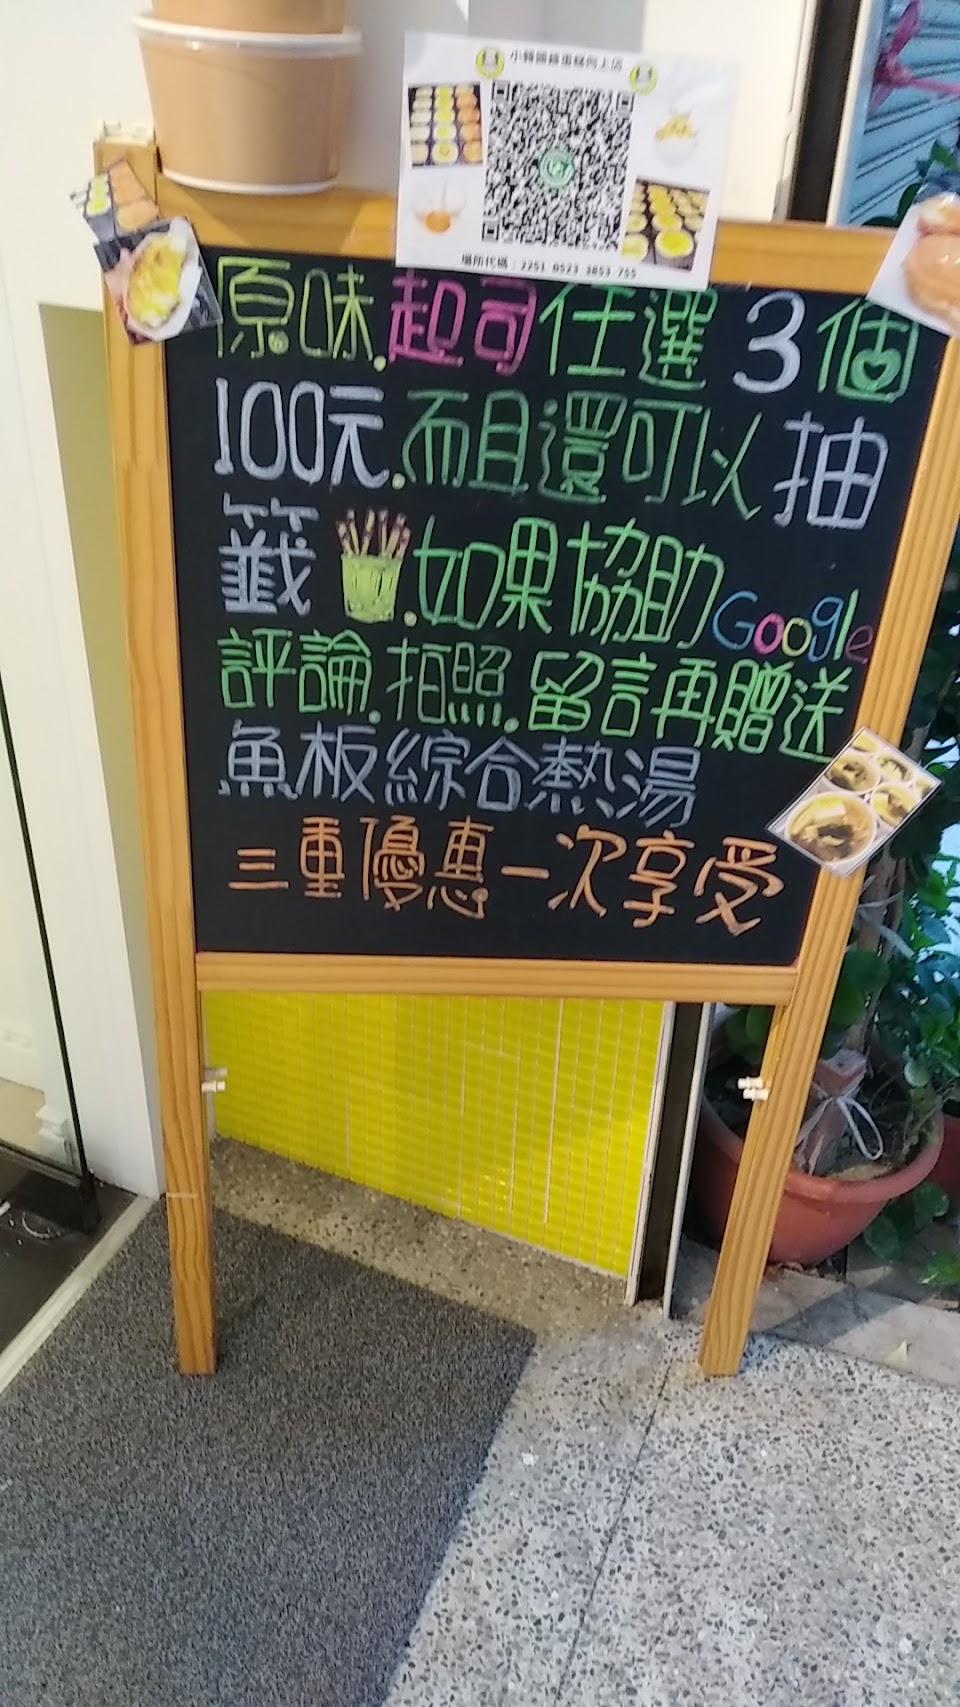 小韓國雞蛋糕向上店
場所代碼：2251 0523 3853 755
原味.起司任選3個
100元.而且還可以抽
籤.如果協助Google
評論.拍照.留言再贈送
魚板綜合熱湯
三重優惠一次享受